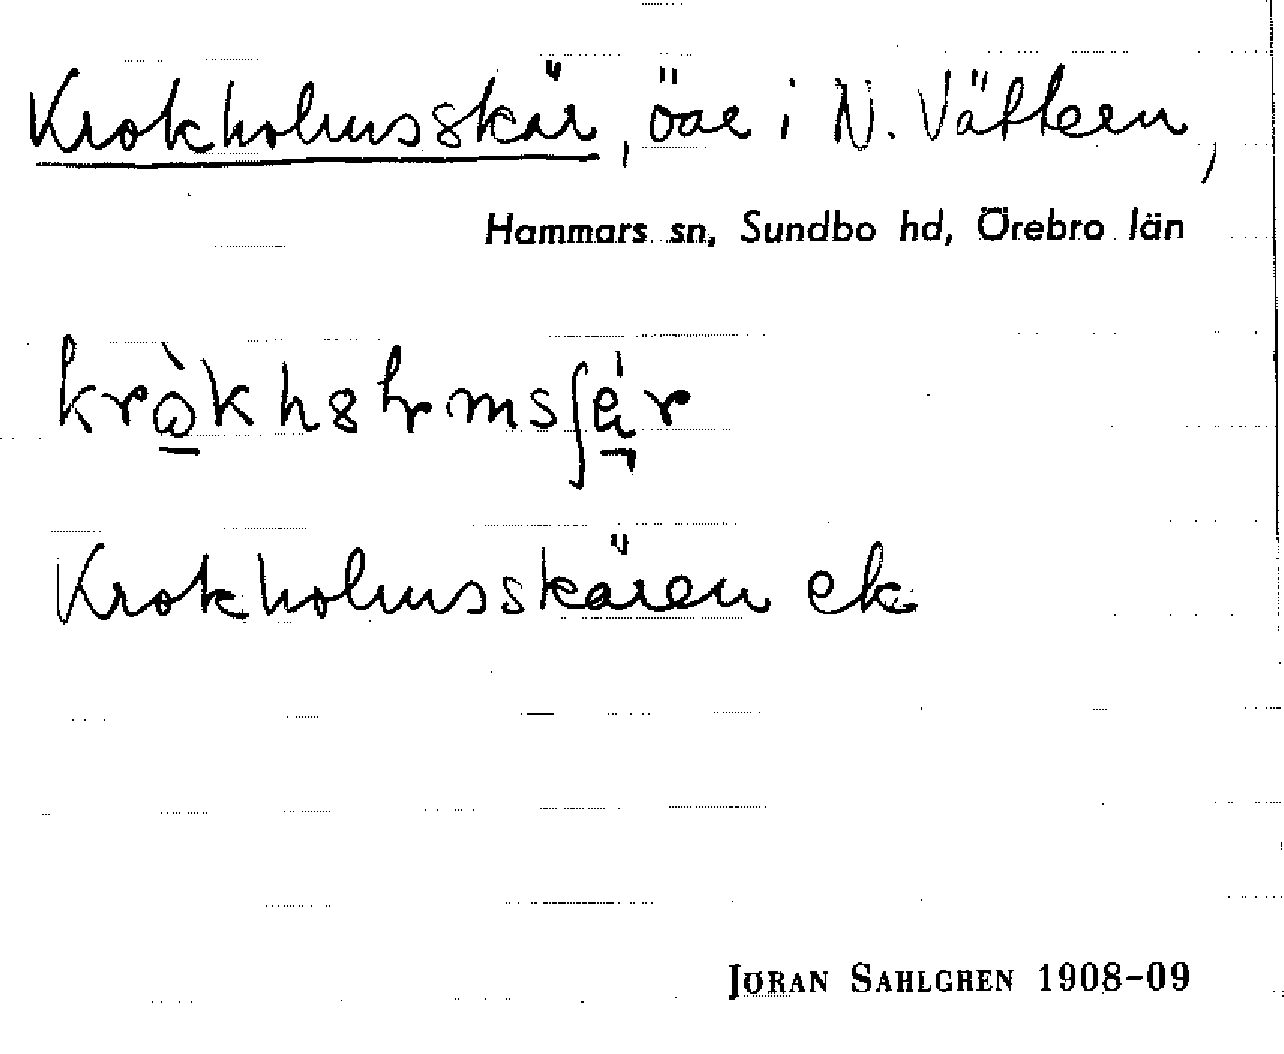 Krokholmsskär, öar i N. Vättern,
Hammars sn, Sundbo hd, Örebro län
Krokholmsskären ek
JÖRAN SAHLGREN 1908-09